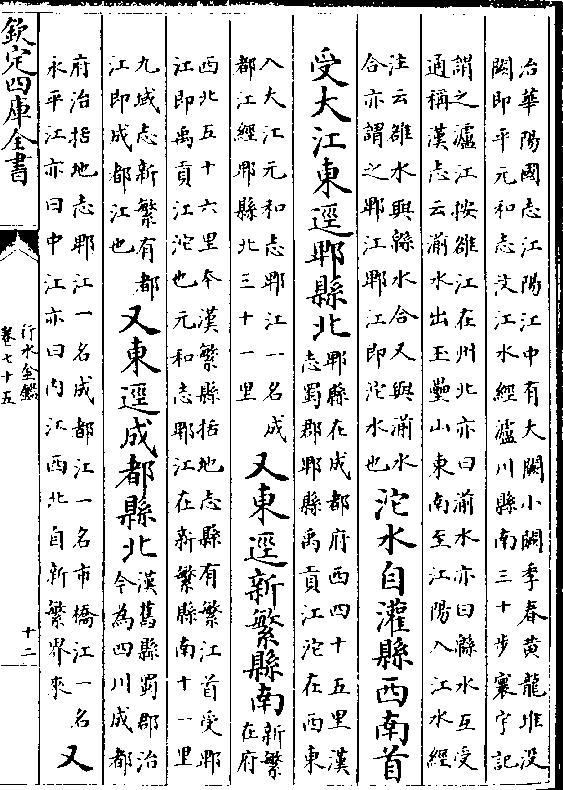 治華陽國志江陽江中有大闕小闕季春黃龍堆没
闕即平元和志汶江水經瀘川縣南三十步寰宇記
謂之瀘江按雒江在州北亦曰湔水亦曰緜水互受
通稱漢志云湔水出玉壘山東南至江陽入江水經
注云雒水與緜水合又與湔水
合亦謂之郫江郫江即沱水也
沱水自灌縣西南首
受大江東逕郫縣北
郫縣在成都府西四十五里漢
志蜀郡郫縣禹貢江沱在西東
入大江元和志郫江一名成
都江經郫縣北三十一里
又東逕新繁縣南
新繁
在府
西北五十六里本漢繁縣括地志縣有繁江首受郫
江即禹貢江沱也元和志郫江在新繁縣南十一里
九域志新繁有都
江即成都江也
又東逕成都縣北
漢舊縣蜀郡治
今為四川成都
府治括地志郫江一名成都江一名市橋江一名
永平江亦曰中江亦曰内江西北自新繁界來
又
欽定四庫全書
行水金鑑
卷七十五
十二